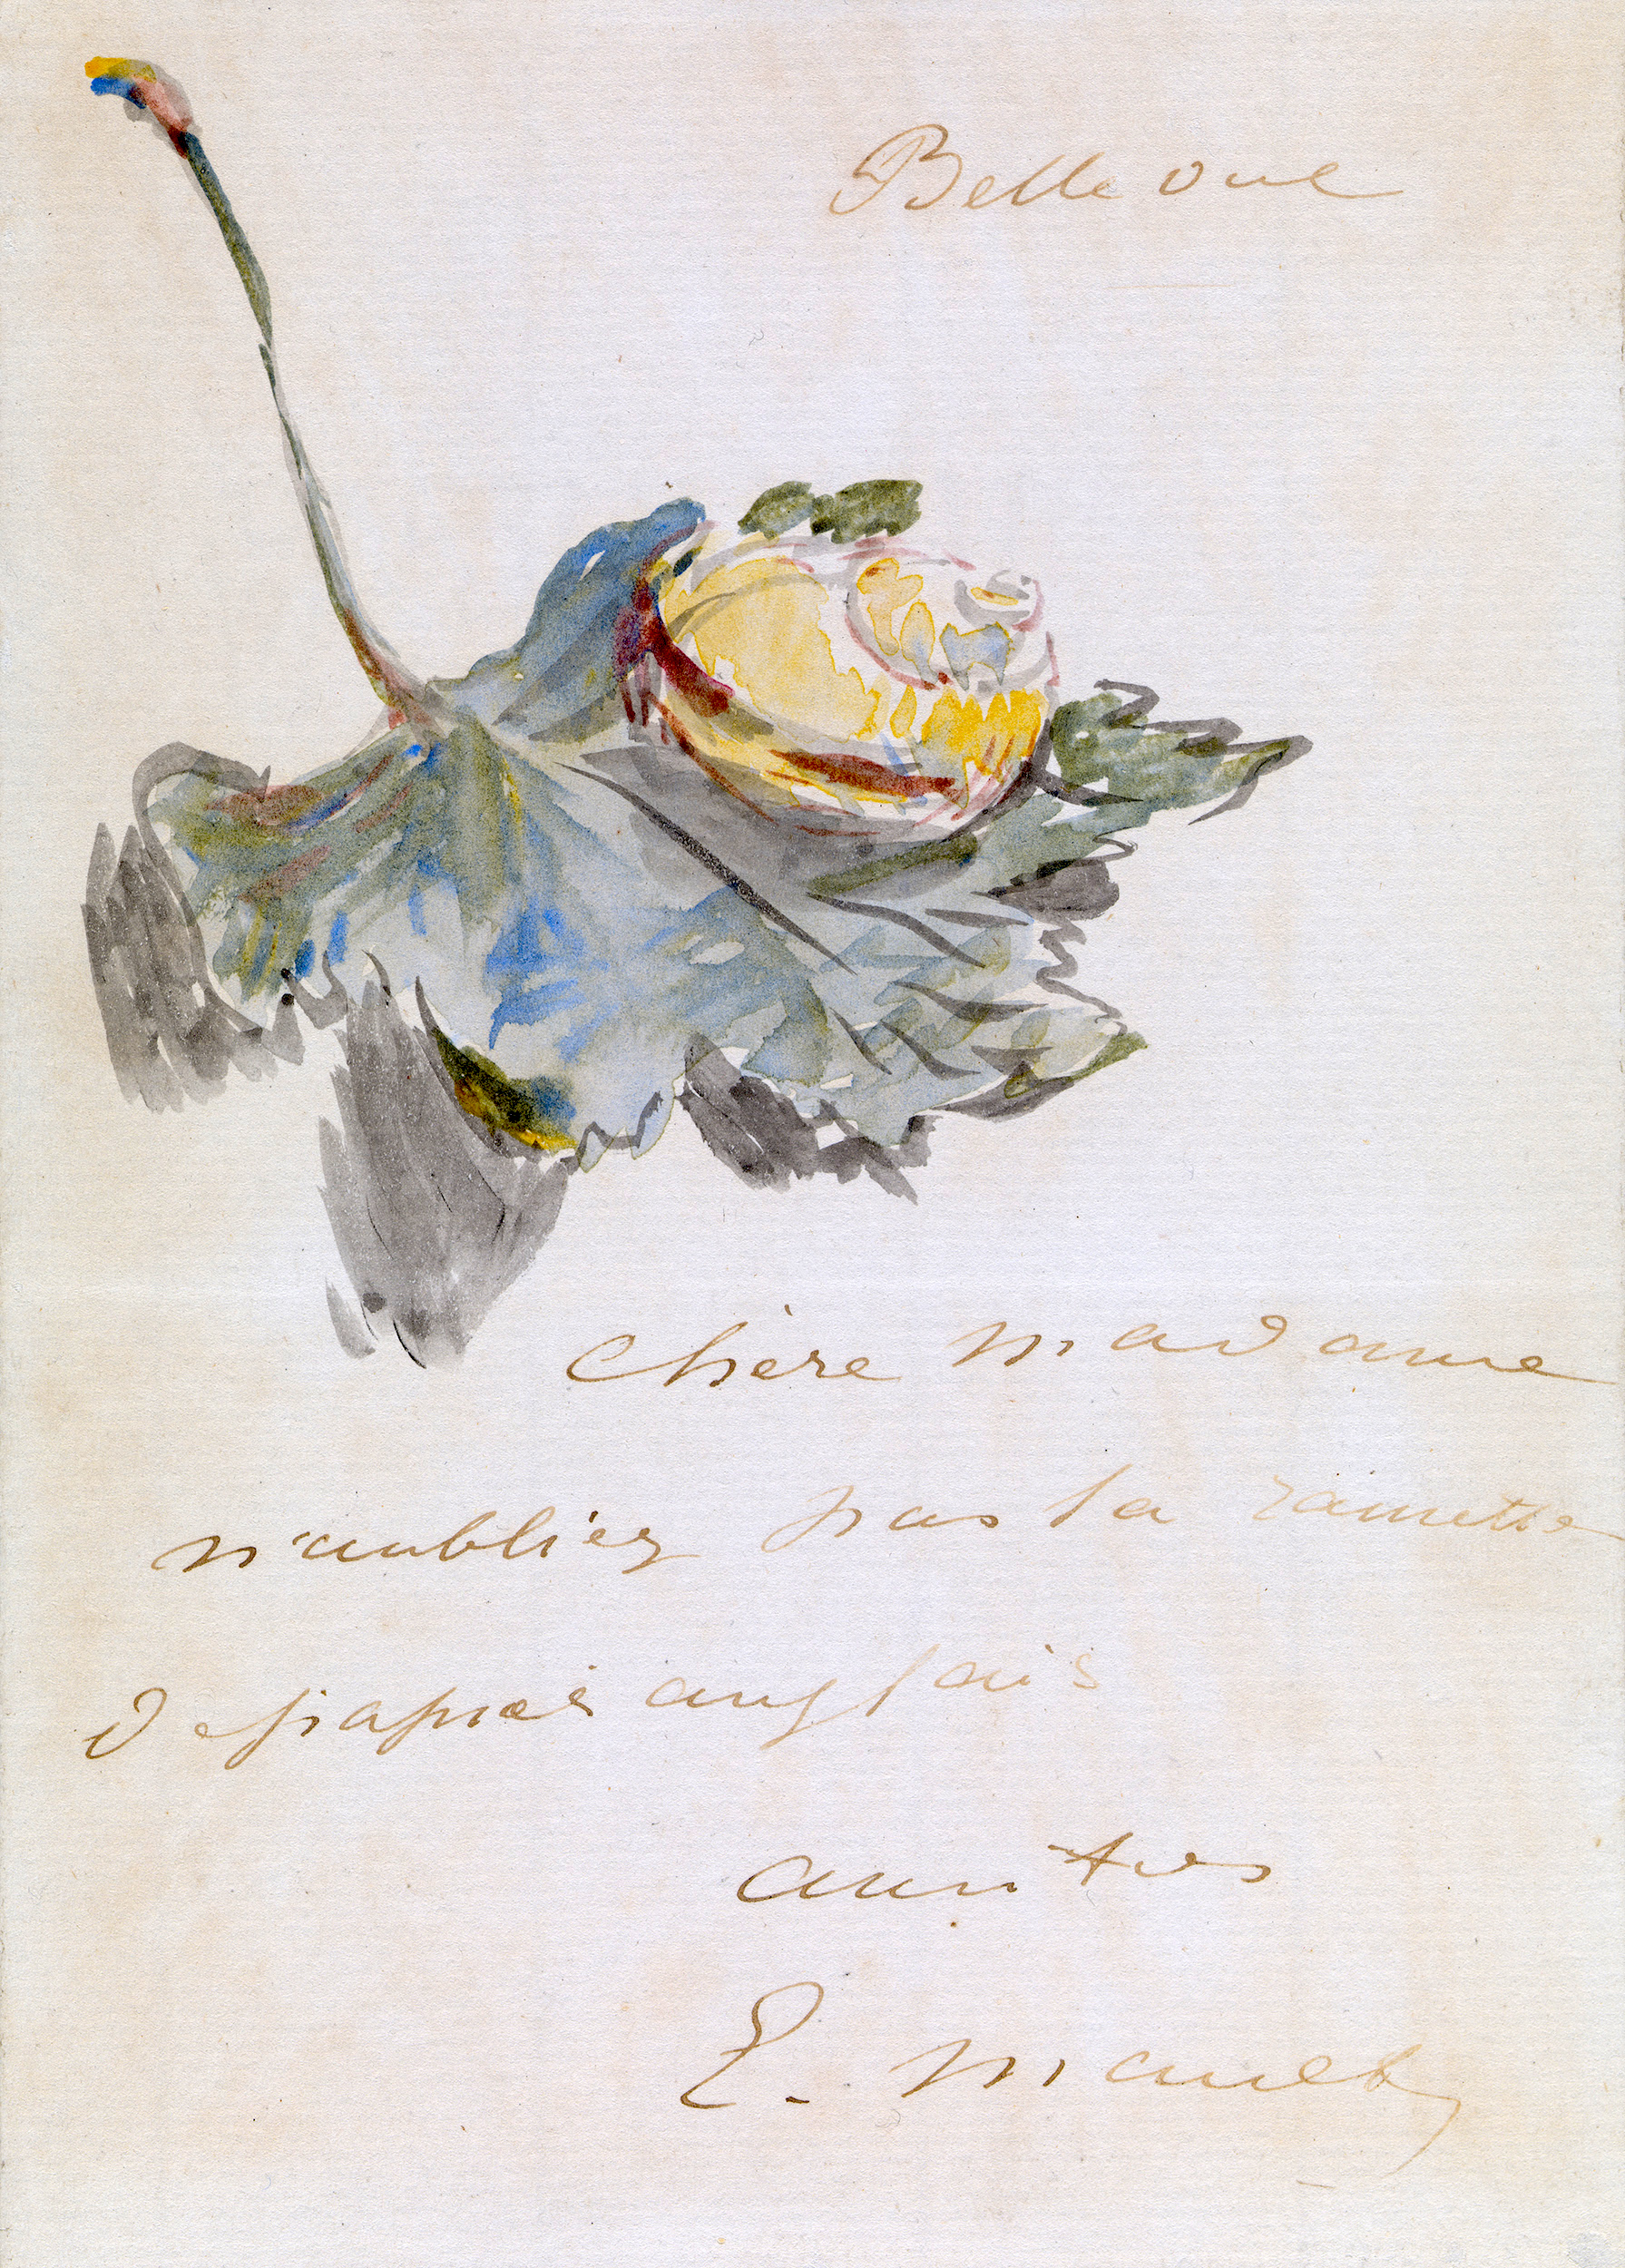 Bellevue
Chère madame
n'oubliez pas la ramette
de papier anglais
amitiés
E. Manet